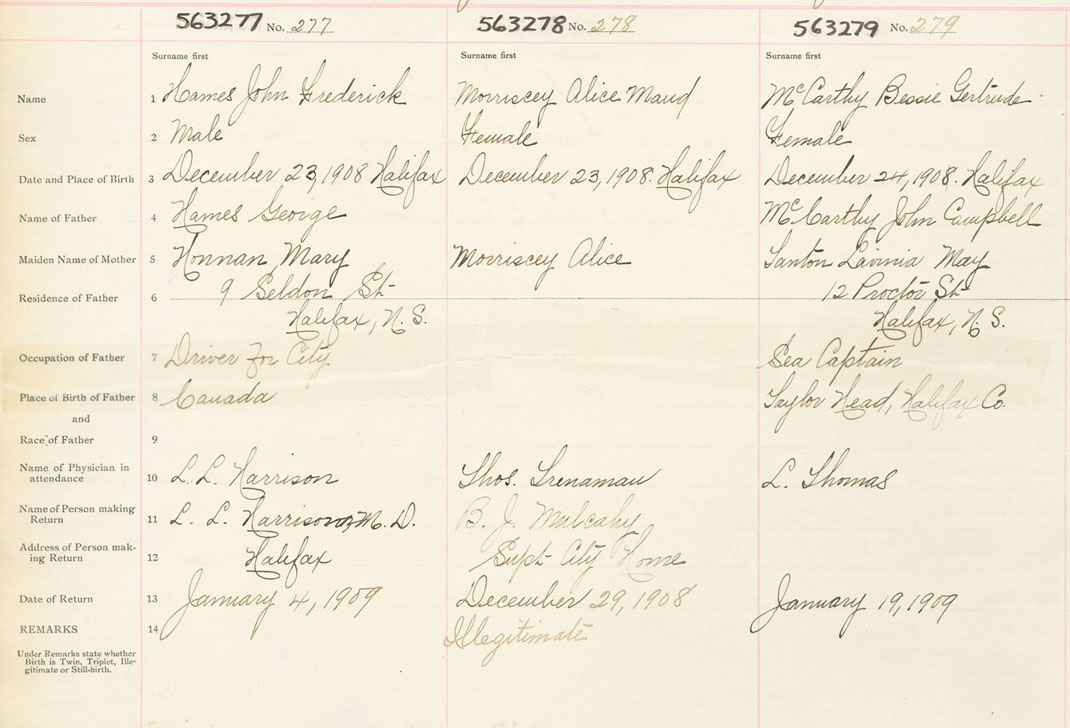 563277 No. 277 563278 No. 278 563279 No. 279
Surname first Surname first Surname first
Name 1 Hames John Frederick Morriscey Alice Maud McCarthy Bessie Gertrude
Sex 2 Male Female Female
Date and Place of Birth 3 December 23, 1908 Halifax December 23, 1908. Halifax December 24, 1908. Halifax
Name of Father 4 Hames George McCarthy John Campbell
Maiden Name of Mother 5 Honnan Mary Morriscey Alice Lavinia May
Residence of Father 6 9 Seldon St 12 Proctor St
Halifax, N. S. Halifax, N. S.
Occupation of Father 7 Driver For City Sea Captain
Place of Birth of Father 8 Canada Taylor Head, Halifax Co.
and
Race of Father 9
Name of Physician in
attendance 10 L. L. Harrison Thos. Trenaman L. Thomas
Name of Person making
Return 11 L. L. Harrison M. D. B. J. Mulcahy
Address of Person mak-
ing Return 12 Halifax Supt City Home
Date of Return 13 January 4, 1909 December 29, 1908 January 19, 1909
REMARKS 14 Illegitimate
Under Remarks state whether
Birth is Twin, Triplet, Ille-
gitimate or Still-birth.